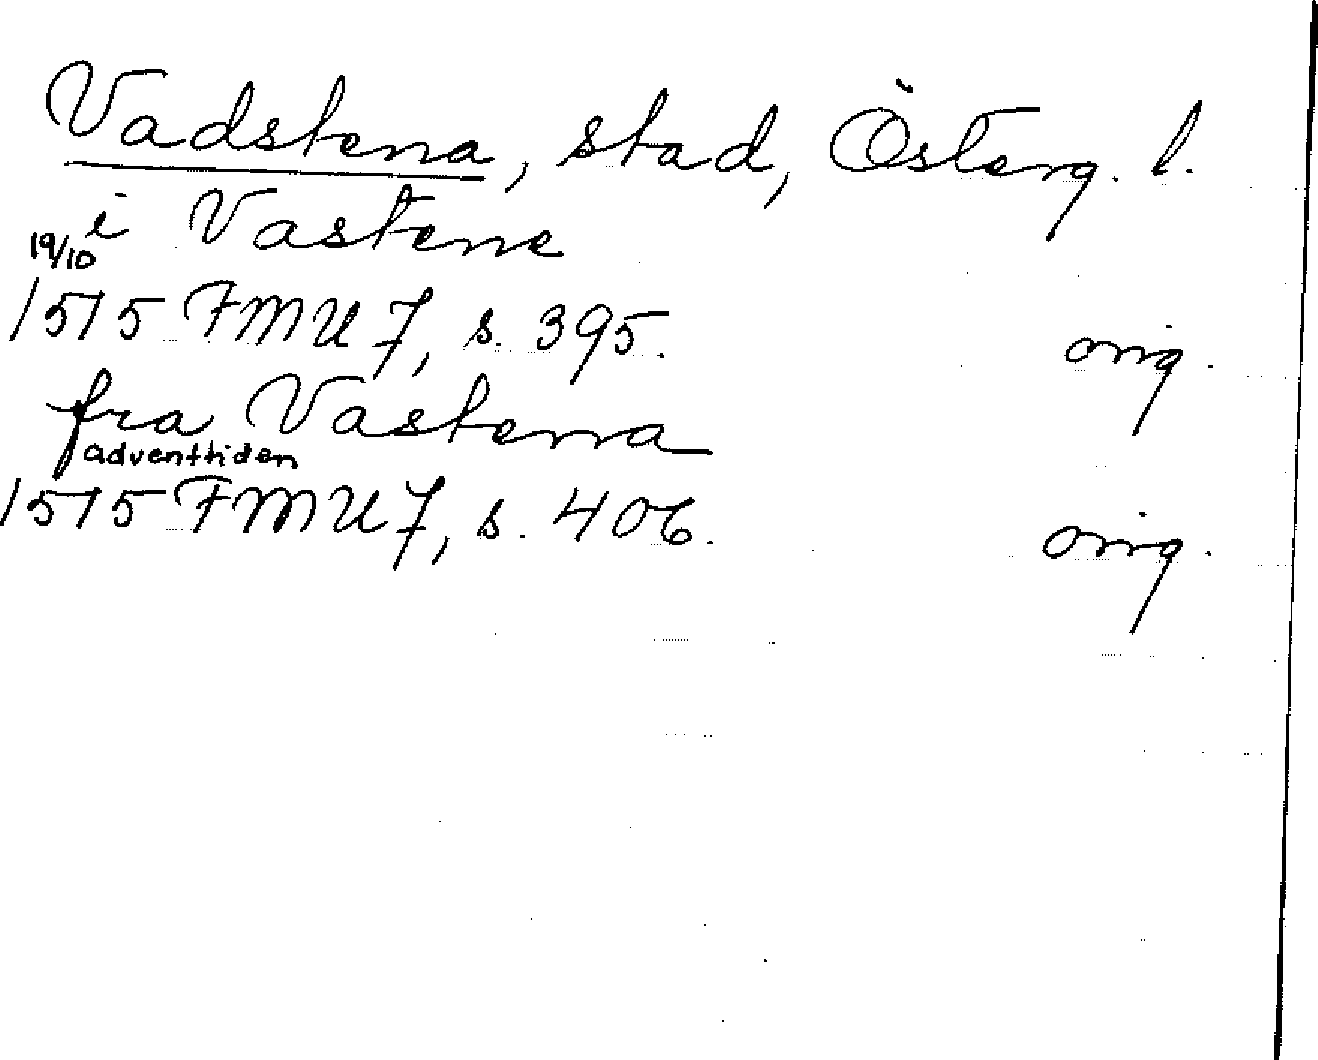 Vadstena, stad, Österg. l.
i Vastene
19/10
1515 FMU 7, s. 395. orig.
fra Vastena
adventtiden
1515 FMU 7, s. 406. orig.